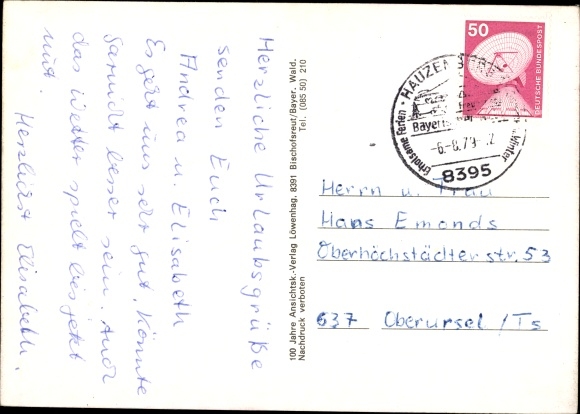 Herzliche Urlaubsgrüße
senden Euch
Andrea u. Elisabeth
Es geht uns sehr gut. Könnte
garnicht besser sein. Auch
das Wetter spielt bis jetzt
mit.
Herzlichst Elisabeth.
100 Jahre Ansichtsk.-Verlag Löwenhag, 8391 Bischofsreut/Bayer. Wald,
Nachdruck verboten Tel. (085 50) 210
50
DEUTSCHE BUNDESPOST
HAUZENBERG
Erholsame Ferien
Winter
-6.-8.79
8395
Herrn u. Frau
Hans Emonds
Oberhöchstädter str. 53
637 Oberursel / Ts